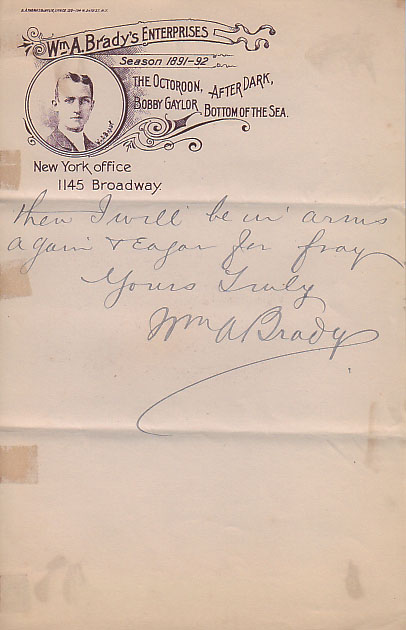 Wm A. Brady's Enterprises
Season 1891-92
The Octoroon, After Dark,
Bobby Gaylor, Bottom of the Sea.
New York office
1145 Broadway.
then I will be in arms
again & Eagar for fray
Yours Truly
Wm A Brady